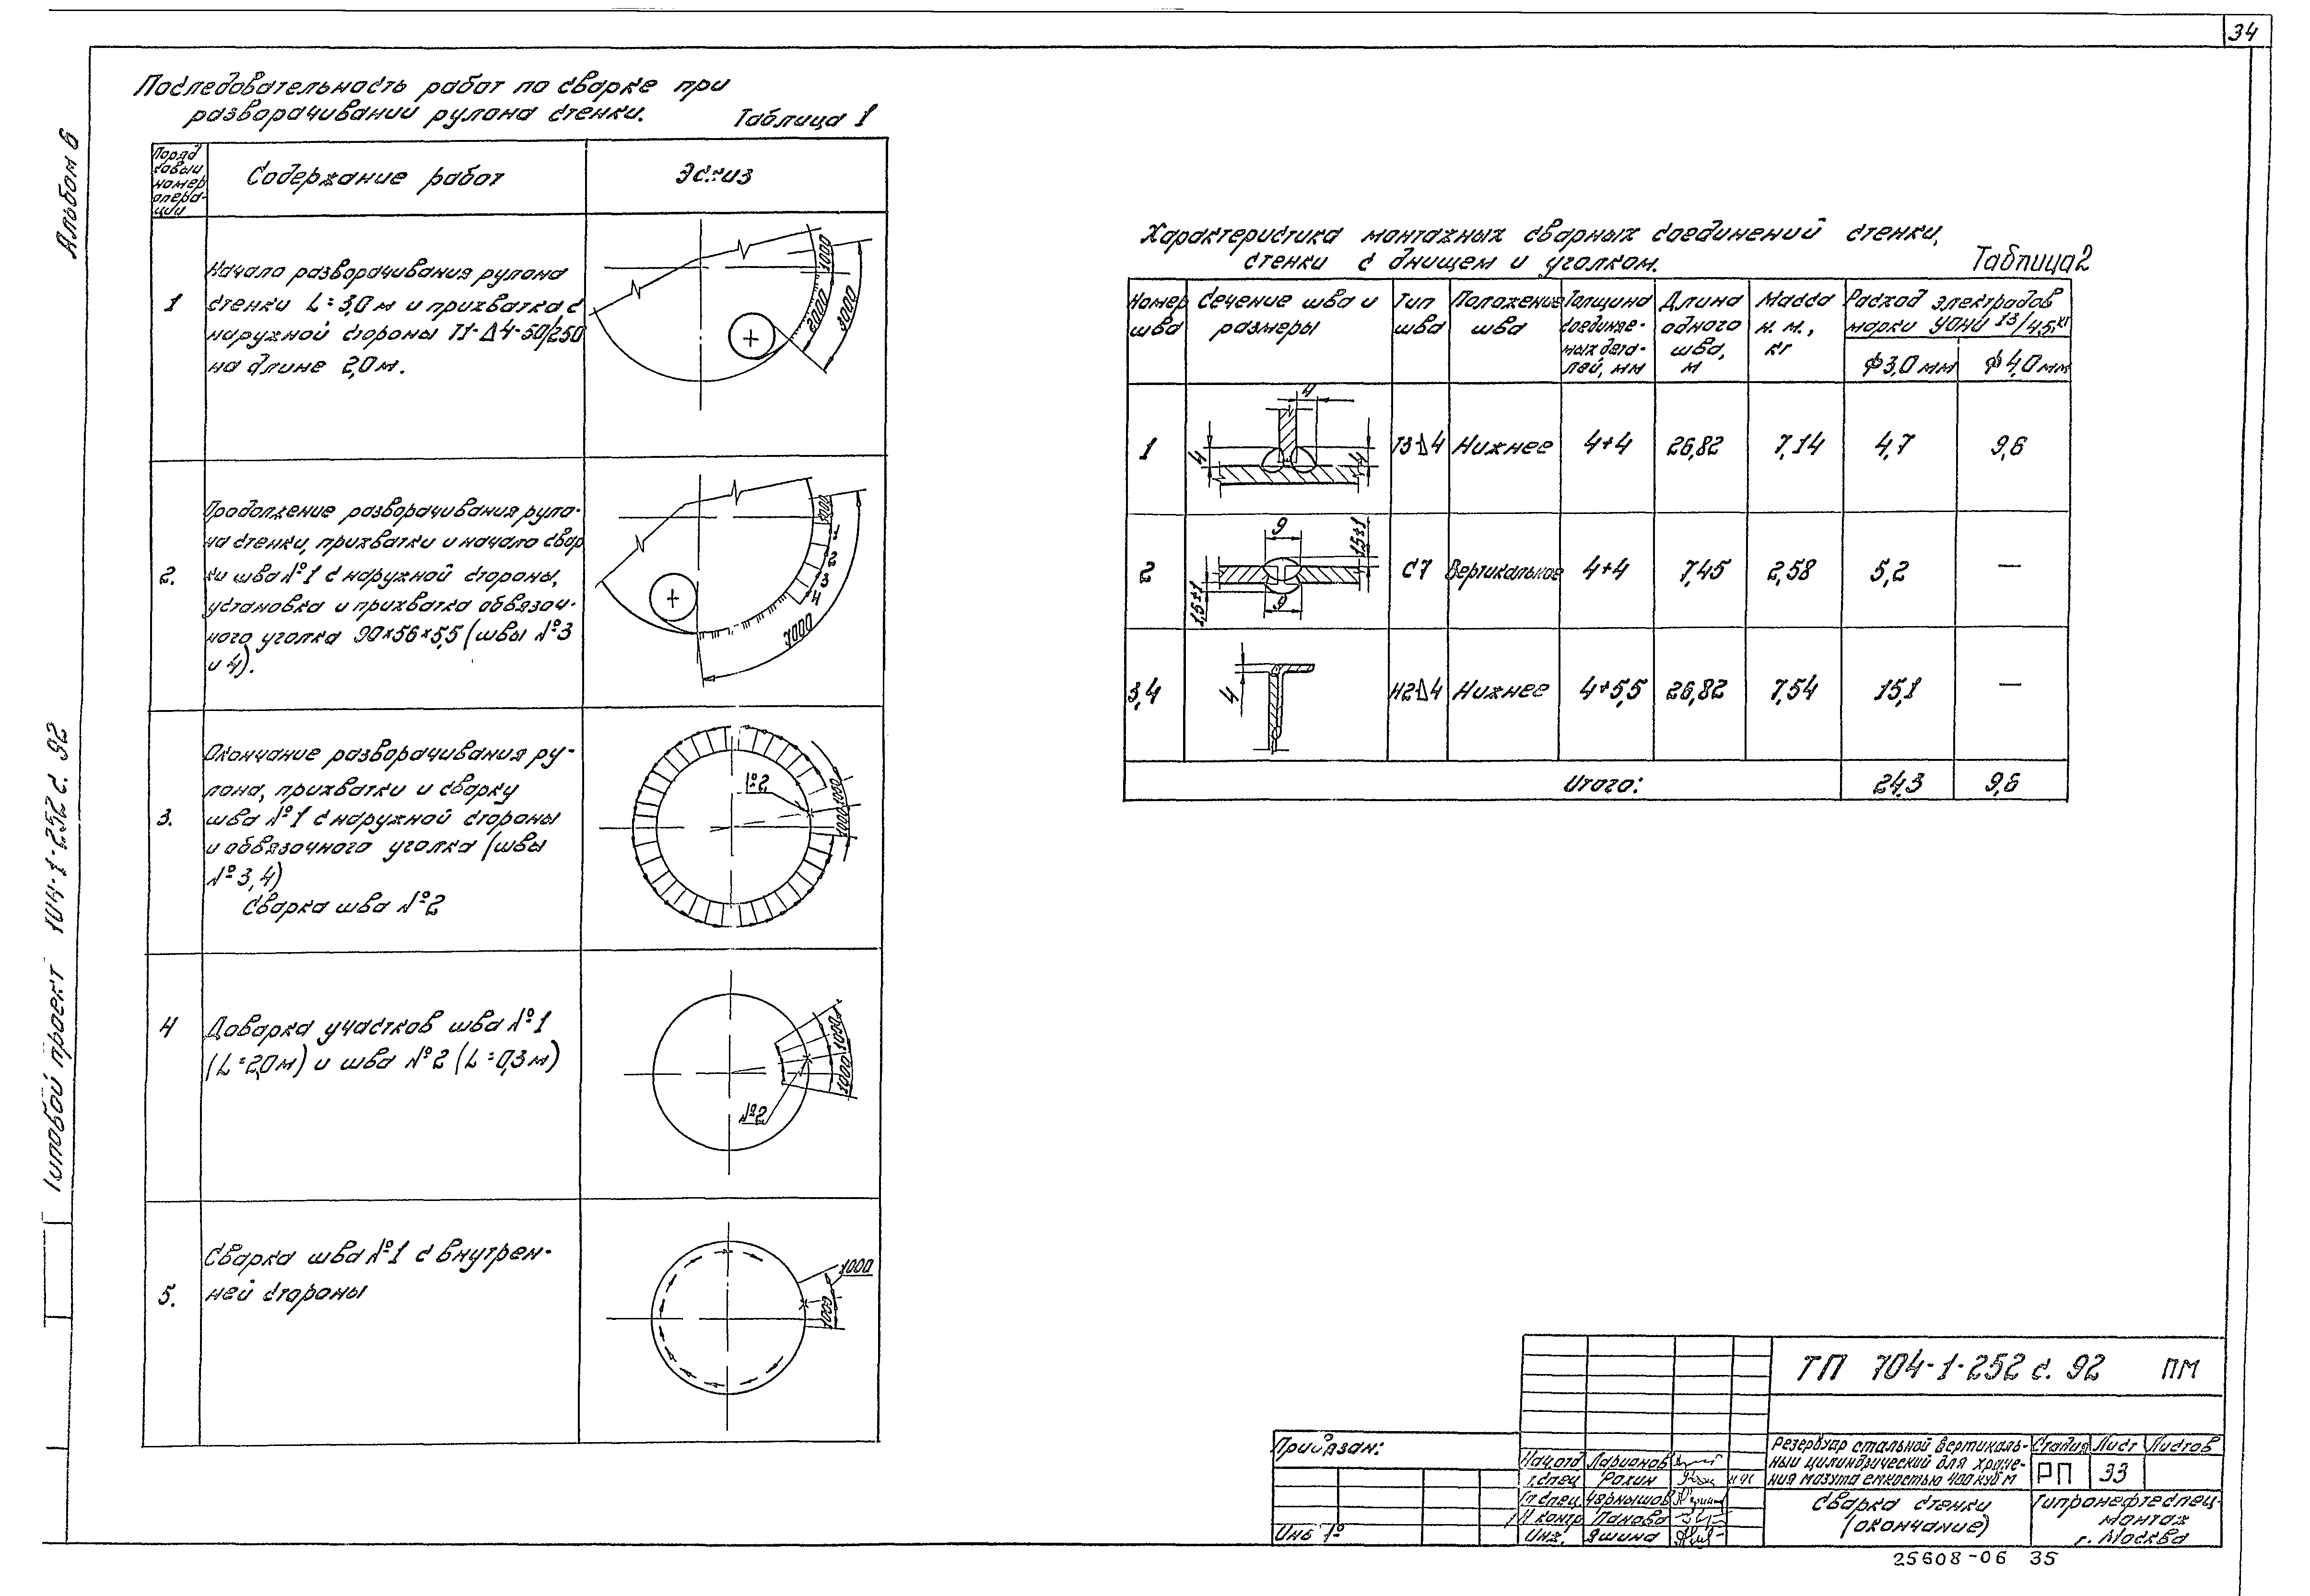 34
Альбом 6
Типовой проект 704-1-252 с. 92
Последовательность работ по сварке при
разворачивании рулона стенки.
Таблица 1
Поряд
ковый
номер
опера-
ции
Содержание работ
Эскиз
1
Начало разворачивания рулона
стенки L=3,0м и прихватка с
наружной стороны Т1-Δ4-50/250
на длине 2,0м.
1000
2000
3000
2.
Продолжение разворачивания руло-
на стенки, прихватки и начало свар
ки шва №1 с наружной стороны,
установка и прихватка обвязоч-
ного уголка 90×56×5,5 (швы №3
и 4).
1
2
3
4
7000
3.
Окончание разворачивания ру-
лона, прихватки и сварку
шва №1 с наружной стороны
и обвязочного уголка (швы
№3,4)
Сварка шва №2
№2
1000
1000
4
Доварка участков шва №1
(L=2,0м) и шва №2 (L=0,3м)
1000
1000
№2
5.
Сварка шва №1 с внутрен-
ней стороны
1000
1000
Характеристика монтажных сварных соединений стенки,
стенки с днищем и уголком.
Таблица 2
Номер
шва
Сечение шва и
размеры
Тип
шва
Положение
шва
Толщина
соединяе-
мых дета-
лей, мм
Длина
одного
шва,
м
Масса
н. м.,
кг
Расход электродов
марки УОНИ 13/45, кг
ф3,0мм
ф4,0мм
1
4
4
4
Т3Δ4
Нижнее
4+4
26,82
7,14
4,7
9,6
2
9
1,5±1
1,5±1
9
С7
Вертикальное
4+4
7,45
2,58
5,2
—
3,4
4
Н2Δ4
Нижнее
4+5,5
26,82
7,54
15,1
—
Итого:
24,3
9,6
ТП 704-1-252 с. 92 ПМ
Привязан:
Инв №
Нач.отд Ларионов
Гл спец Чернышов
Н контр Панова
Инж. Яшина
Резервуар стальной вертикаль-
ный цилиндрический для хране-
ния мазута емкостью 400 куб м
Стадия Лист Листов
РП 33
Сварка стенки
(окончание)
Гипронефтеспец-
монтаж
г. Москва
25608-06 35